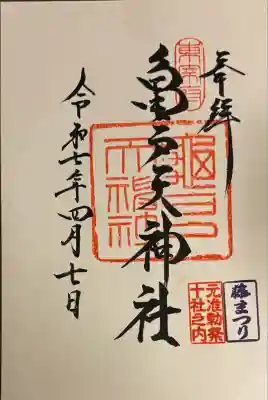 奉拝
東宰府
亀戸天神社
亀戸天神社
令和七年四月七日
元准勅祭
十社之内
藤まつり